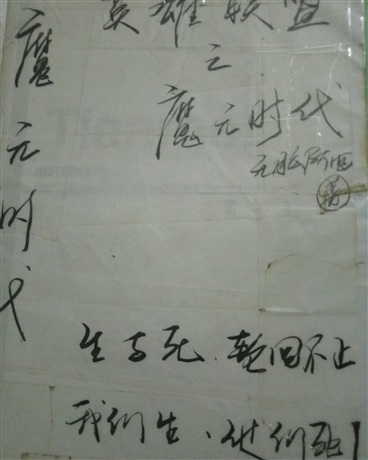 英雄联盟
之
魔元时代
魔元时代
生与死、轮回不止
我们生、他们死!